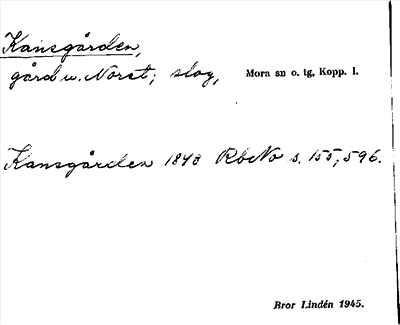 Kansgården,
gård u. Norst; slog, Mora sn o. tg, Kopp. l.
Kansgården 1848 RbNo s. 155, 596.
Bror Lindén 1945.